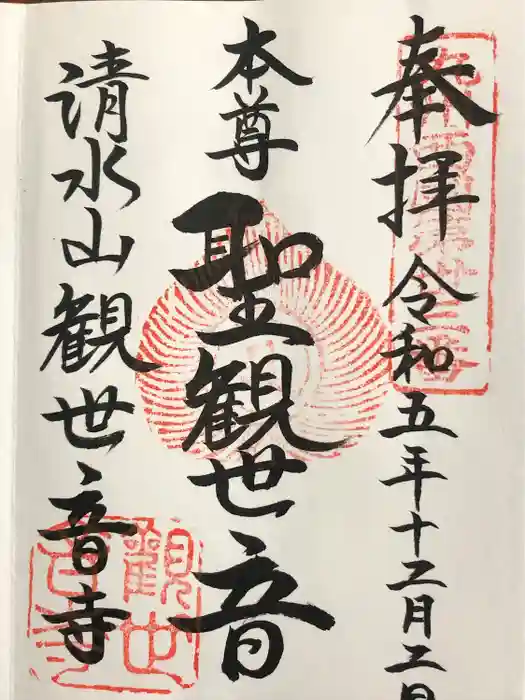 奉拝 令和五年十二月二日
本尊
聖観世音
清水山観世音寺